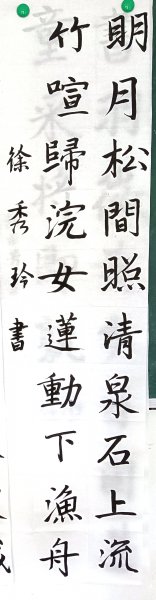 明月松間照清泉石上流
竹喧歸浣女蓮動下漁舟
徐秀玲書